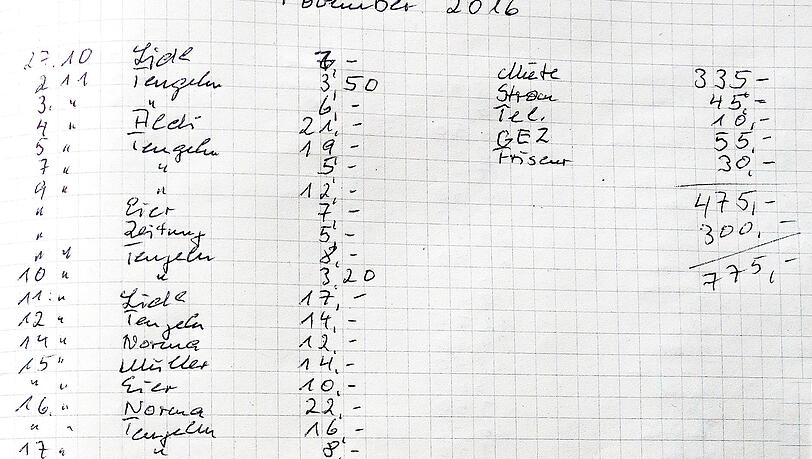 November 2016
27.10 Lidl 7,-
2 11 Tengelm 3,50
3. " " 6,-
4 " Aldi 21,-
5 " Tengelm 19,-
7 " " 5,-
9 " " 12,-
" Eier 7,-
" Zeitung 5,-
" " Tengelm 8,-
10 " " 3,20
11. " Lidl 17,-
12 " Tengelm 14,-
14 " Norma 12,-
15 " Müller 14,-
" " Eier 10,-
16. " Norma 22,-
" " Tengelm 16,-
17 " " 8,-
Miete 335,-
Strom 45,-
Tel. 10,-
GEZ 55,-
Friseur 30,-
475,-
300,-
775,-